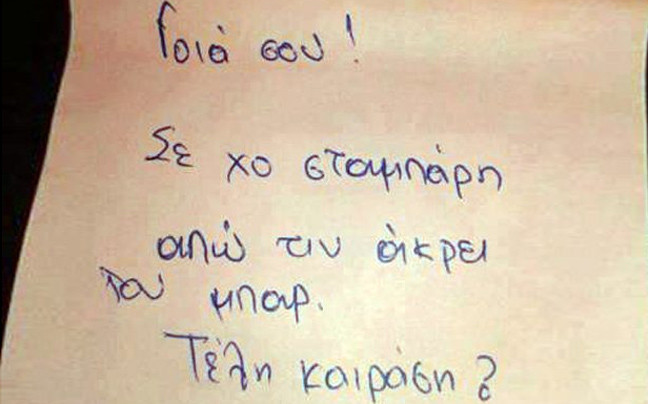 Γοιά σου!
Σε χο σταμπάρη
απώ τιν άκρει
του μπαρ.
Τέλη καιράση?